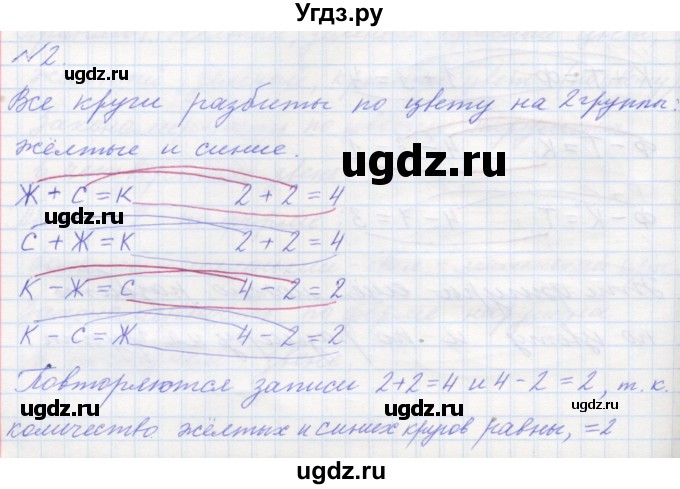 Угдз.ру
№2.
Все круги разбиты по цвету на 2 группы:
жёлтые и синие.
Ж + С = К 2 + 2 = 4
С + Ж = К 2 + 2 = 4
К - Ж = С 4 - 2 = 2
К - С = Ж 4 - 2 = 2
Повторяются записи 2+2=4 и 4-2=2, т. к.
количество жёлтых и синих кругов равны, =2
ugdz.ru
ugdz.ru
ugdz.ru
ugdz.ru
ugdz.ru
ugdz.ru
ugdz.ru
ugdz.ru
ugdz.ru
ugdz.ru
Угдз.ру